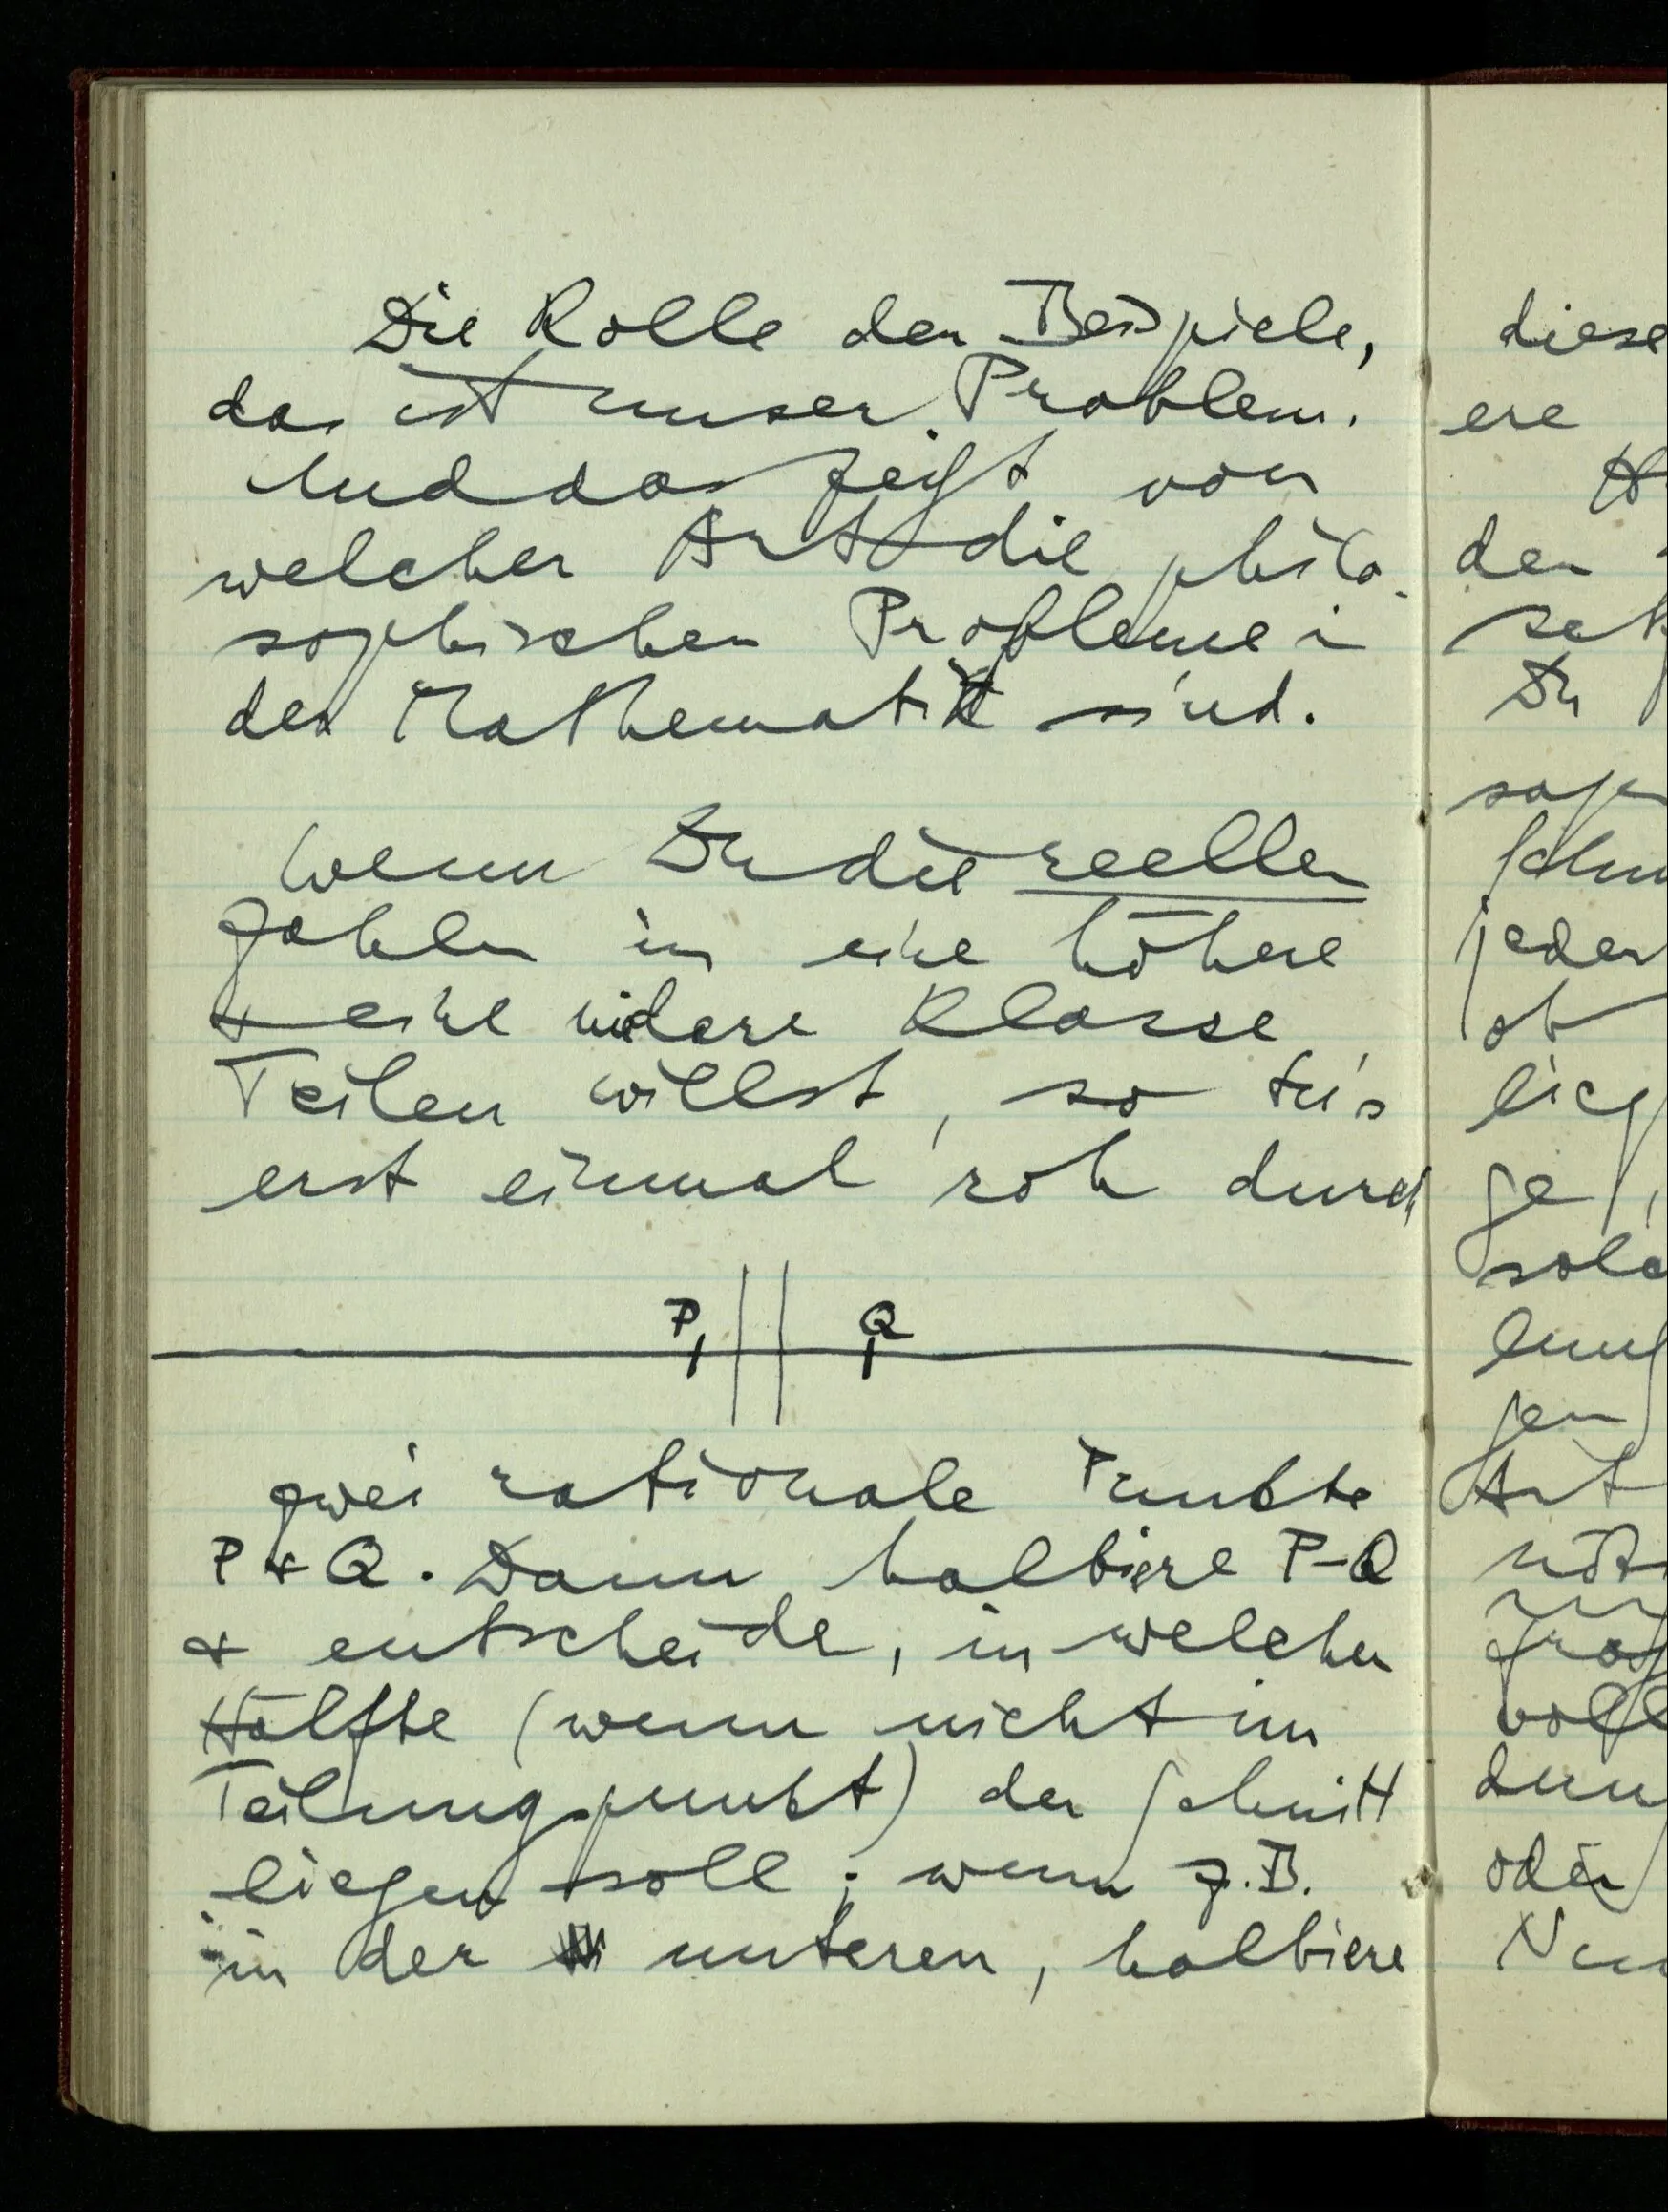 Die Rolle der Beispiele,
das ist unser Problem.
Und das zeigt von
welcher Art die philo-
sophischen Probleme i
der Mathematik sind.
Wenn Du die reellen
Zahlen in eine höhere
& eine nidere Klasse
Teilen willst, so tu's
erst einmal roh durch
P Q
zwei rationale Punkte
P & Q. Dann halbiere P–Q
& entscheide, in welcher
Hälfte (wenn nicht im
Teilungspunkt) der Schnitt
liegen soll; wenn z.B.
in der unteren, halbiere
diese
ere
der
Du
jeder
ob
ge
Art
oder